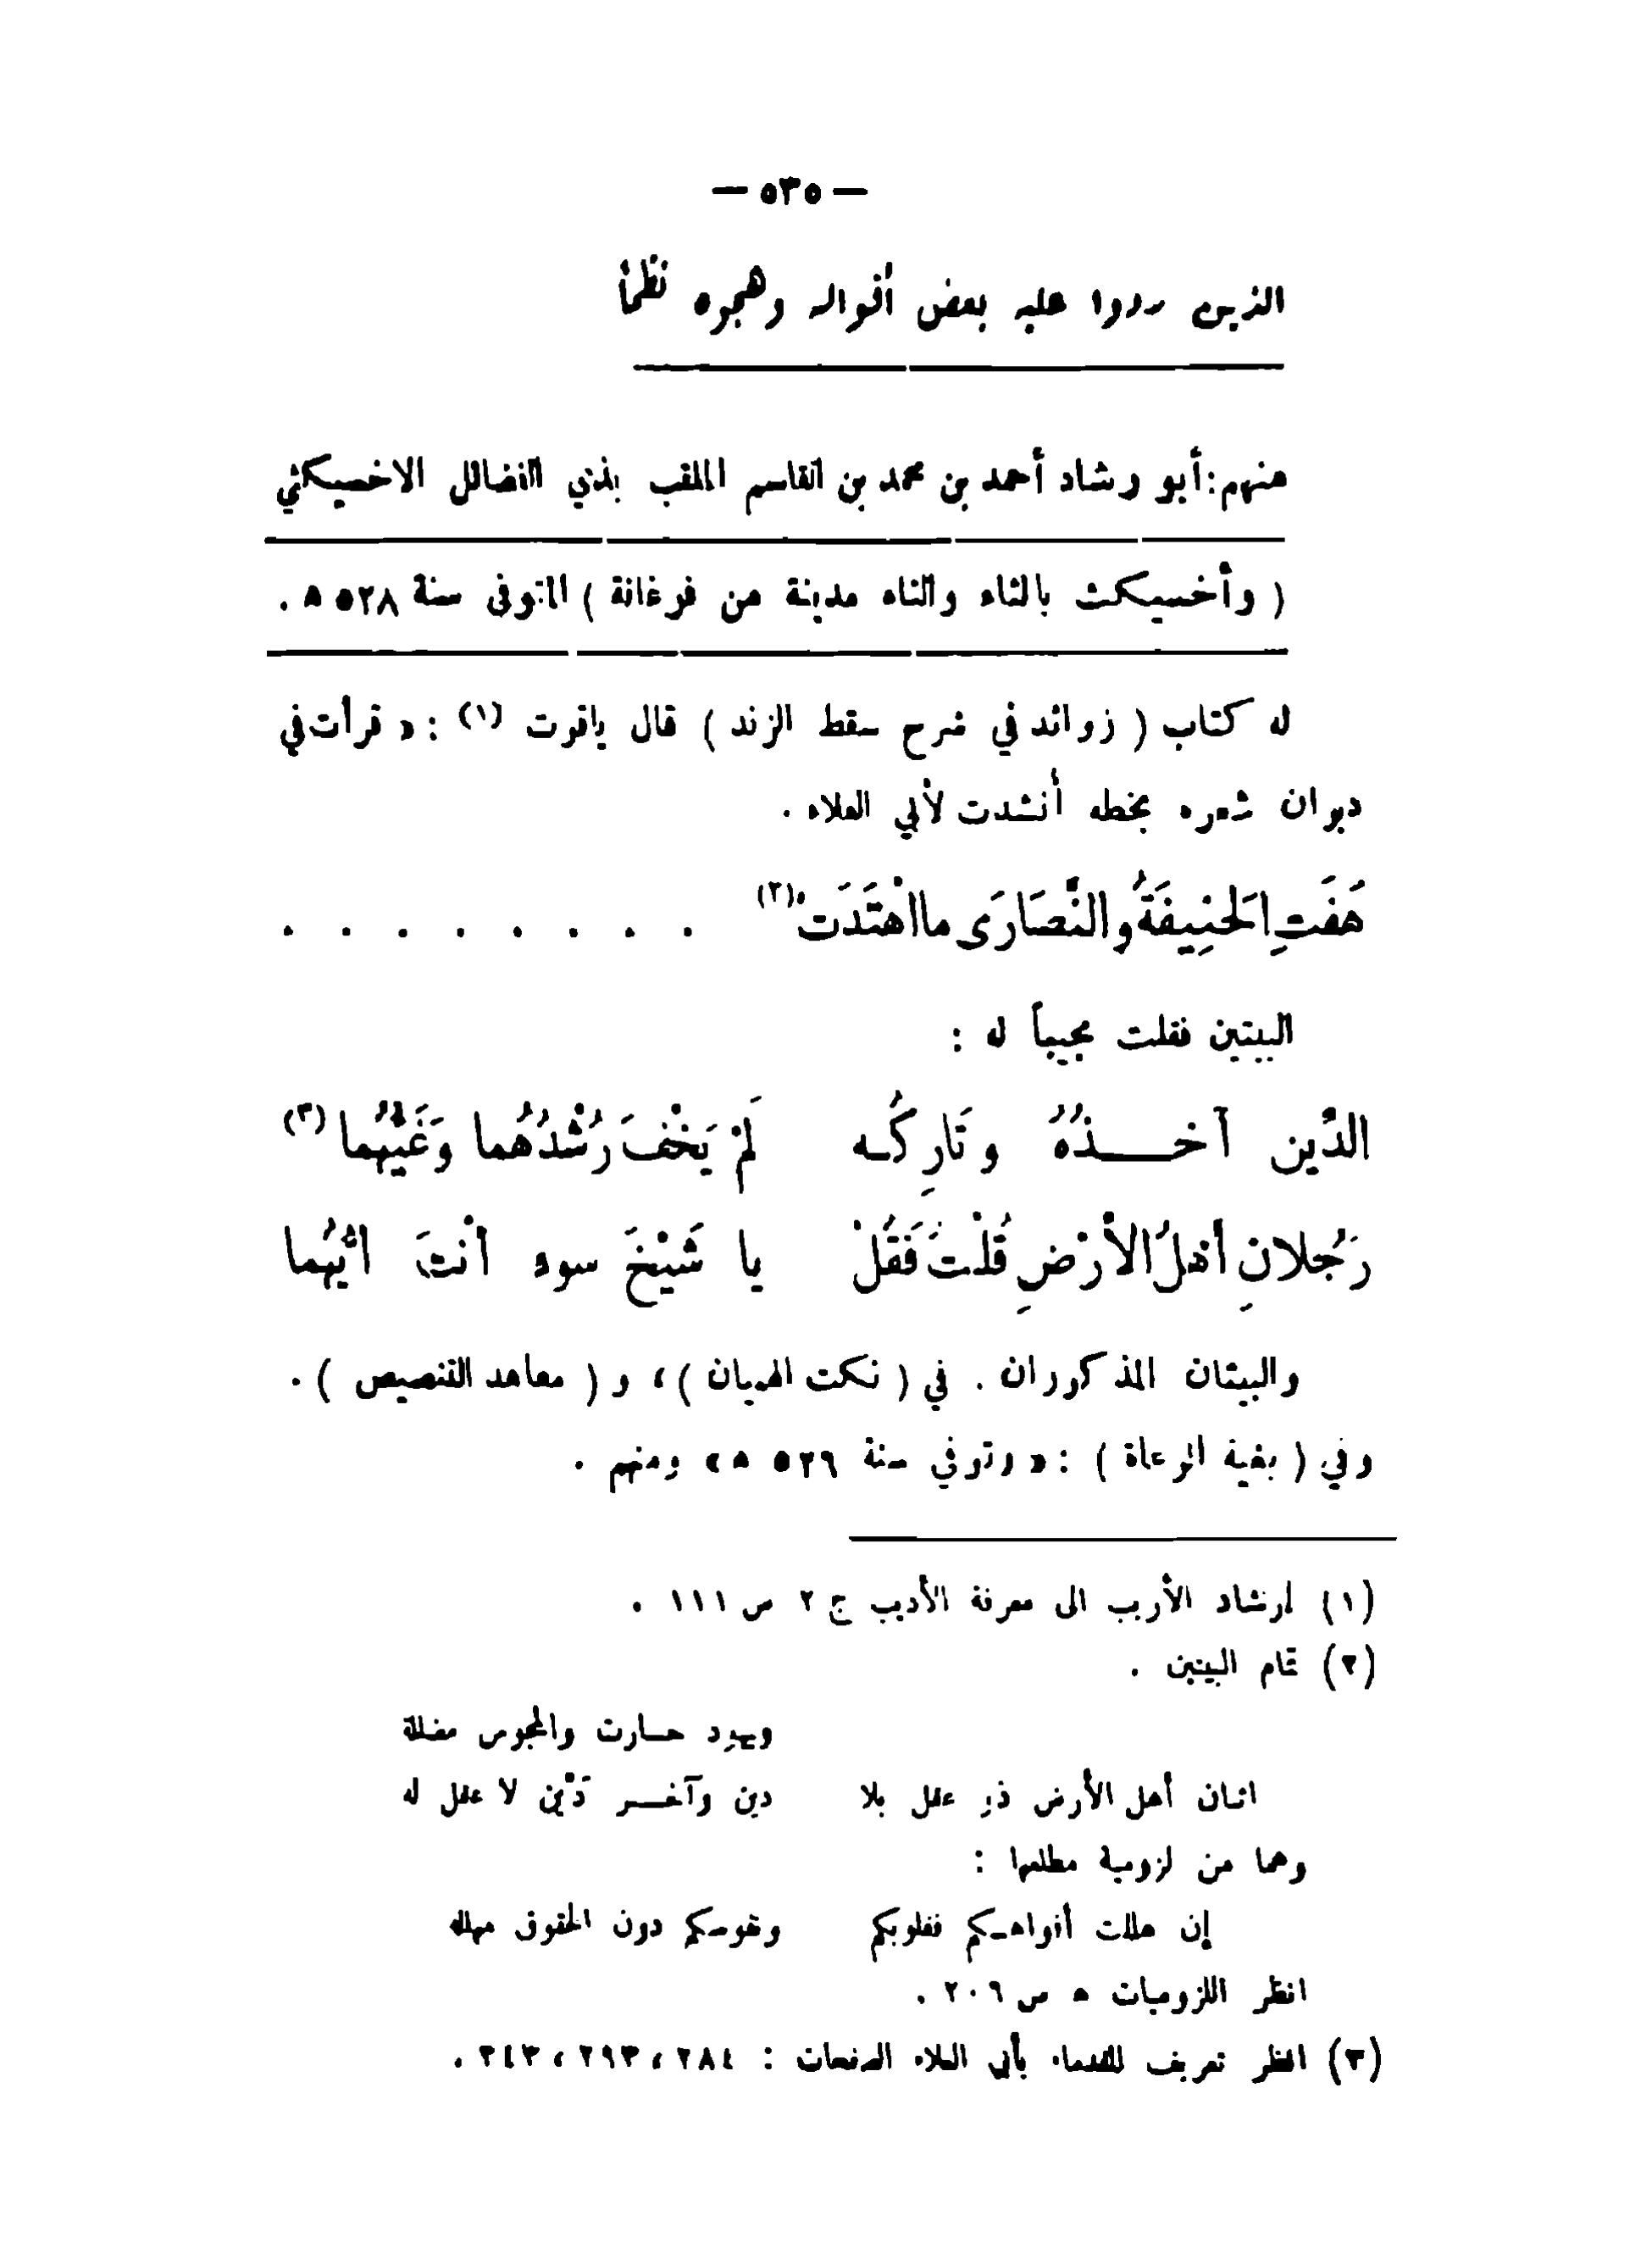 — ٥٣٥ —
الذين ردوا عليه بعض أقواله وهجوه نظماً
منهم: أبو رشاد أحمد بن محمد بن القاسم الملقب بذي الفضائل الاخسيكثي
( وأخسيكث بالثاء والتاء مدينة من فرغانة ) المتوفى سنة ٥٢٨ ه .
له كتاب ( زوائد في شرح سقط الزند ) قال ياقوت (١) : « قرأت في
ديوان شعره بخطه أنشدت لأبي العلاء .
هَفَتِ الحَنِيفَةُ والنَّصَارَى ما اهْتَدَتْ (٢) . . . . . . . .
البيتين فقلت مجيباً له :
الدِّين آخـــذُهُ وتَارِكُـه لَمْ يَخْفَ رُشْدُهُما وَغَيُّهُما (٣)
رَجُلانِ أهلُ الأرْضِ قُلْتَ فَقُلْ يا شَيْخَ سوءٍ أنْتَ أيُّهُما
والبيتان المذكوران . في ( نكت الهميان ) ، و ( معاهد التنصيص ) .
وفي ( بغية الوعاة ) : « وتوفي سنة ٥٢٩ ه » ومنهم .
(١) إرشاد الأريب الى معرفة الأديب ج ٢ ص ١١١ .
(٢) تمام البيتين .
ويهود حـارت والمجوس مضللة
اثنان أهل الأرض ذو عقل بلا دين وآخـــر دَيّن لا عقل له
وهما من لزومية مطلعها :
إن هللت أفواهـكم فقلوبكم ونفوسكم دون الحقوق مهلله
انظر اللزوميات ه ص ٢٠٦ .
(٣) انظر تعريف القدماء بأبي العلاء الصفحات : ٢٨٤ ، ٢٩٣ ، ٣٤٣ .